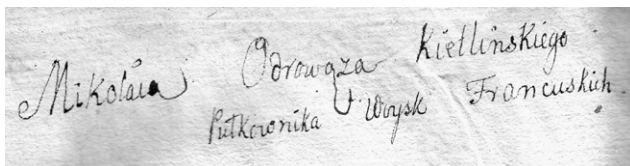 Mikołaia Odrowąza Kietlinskiego
Pułkownika Woysk Francuskich.